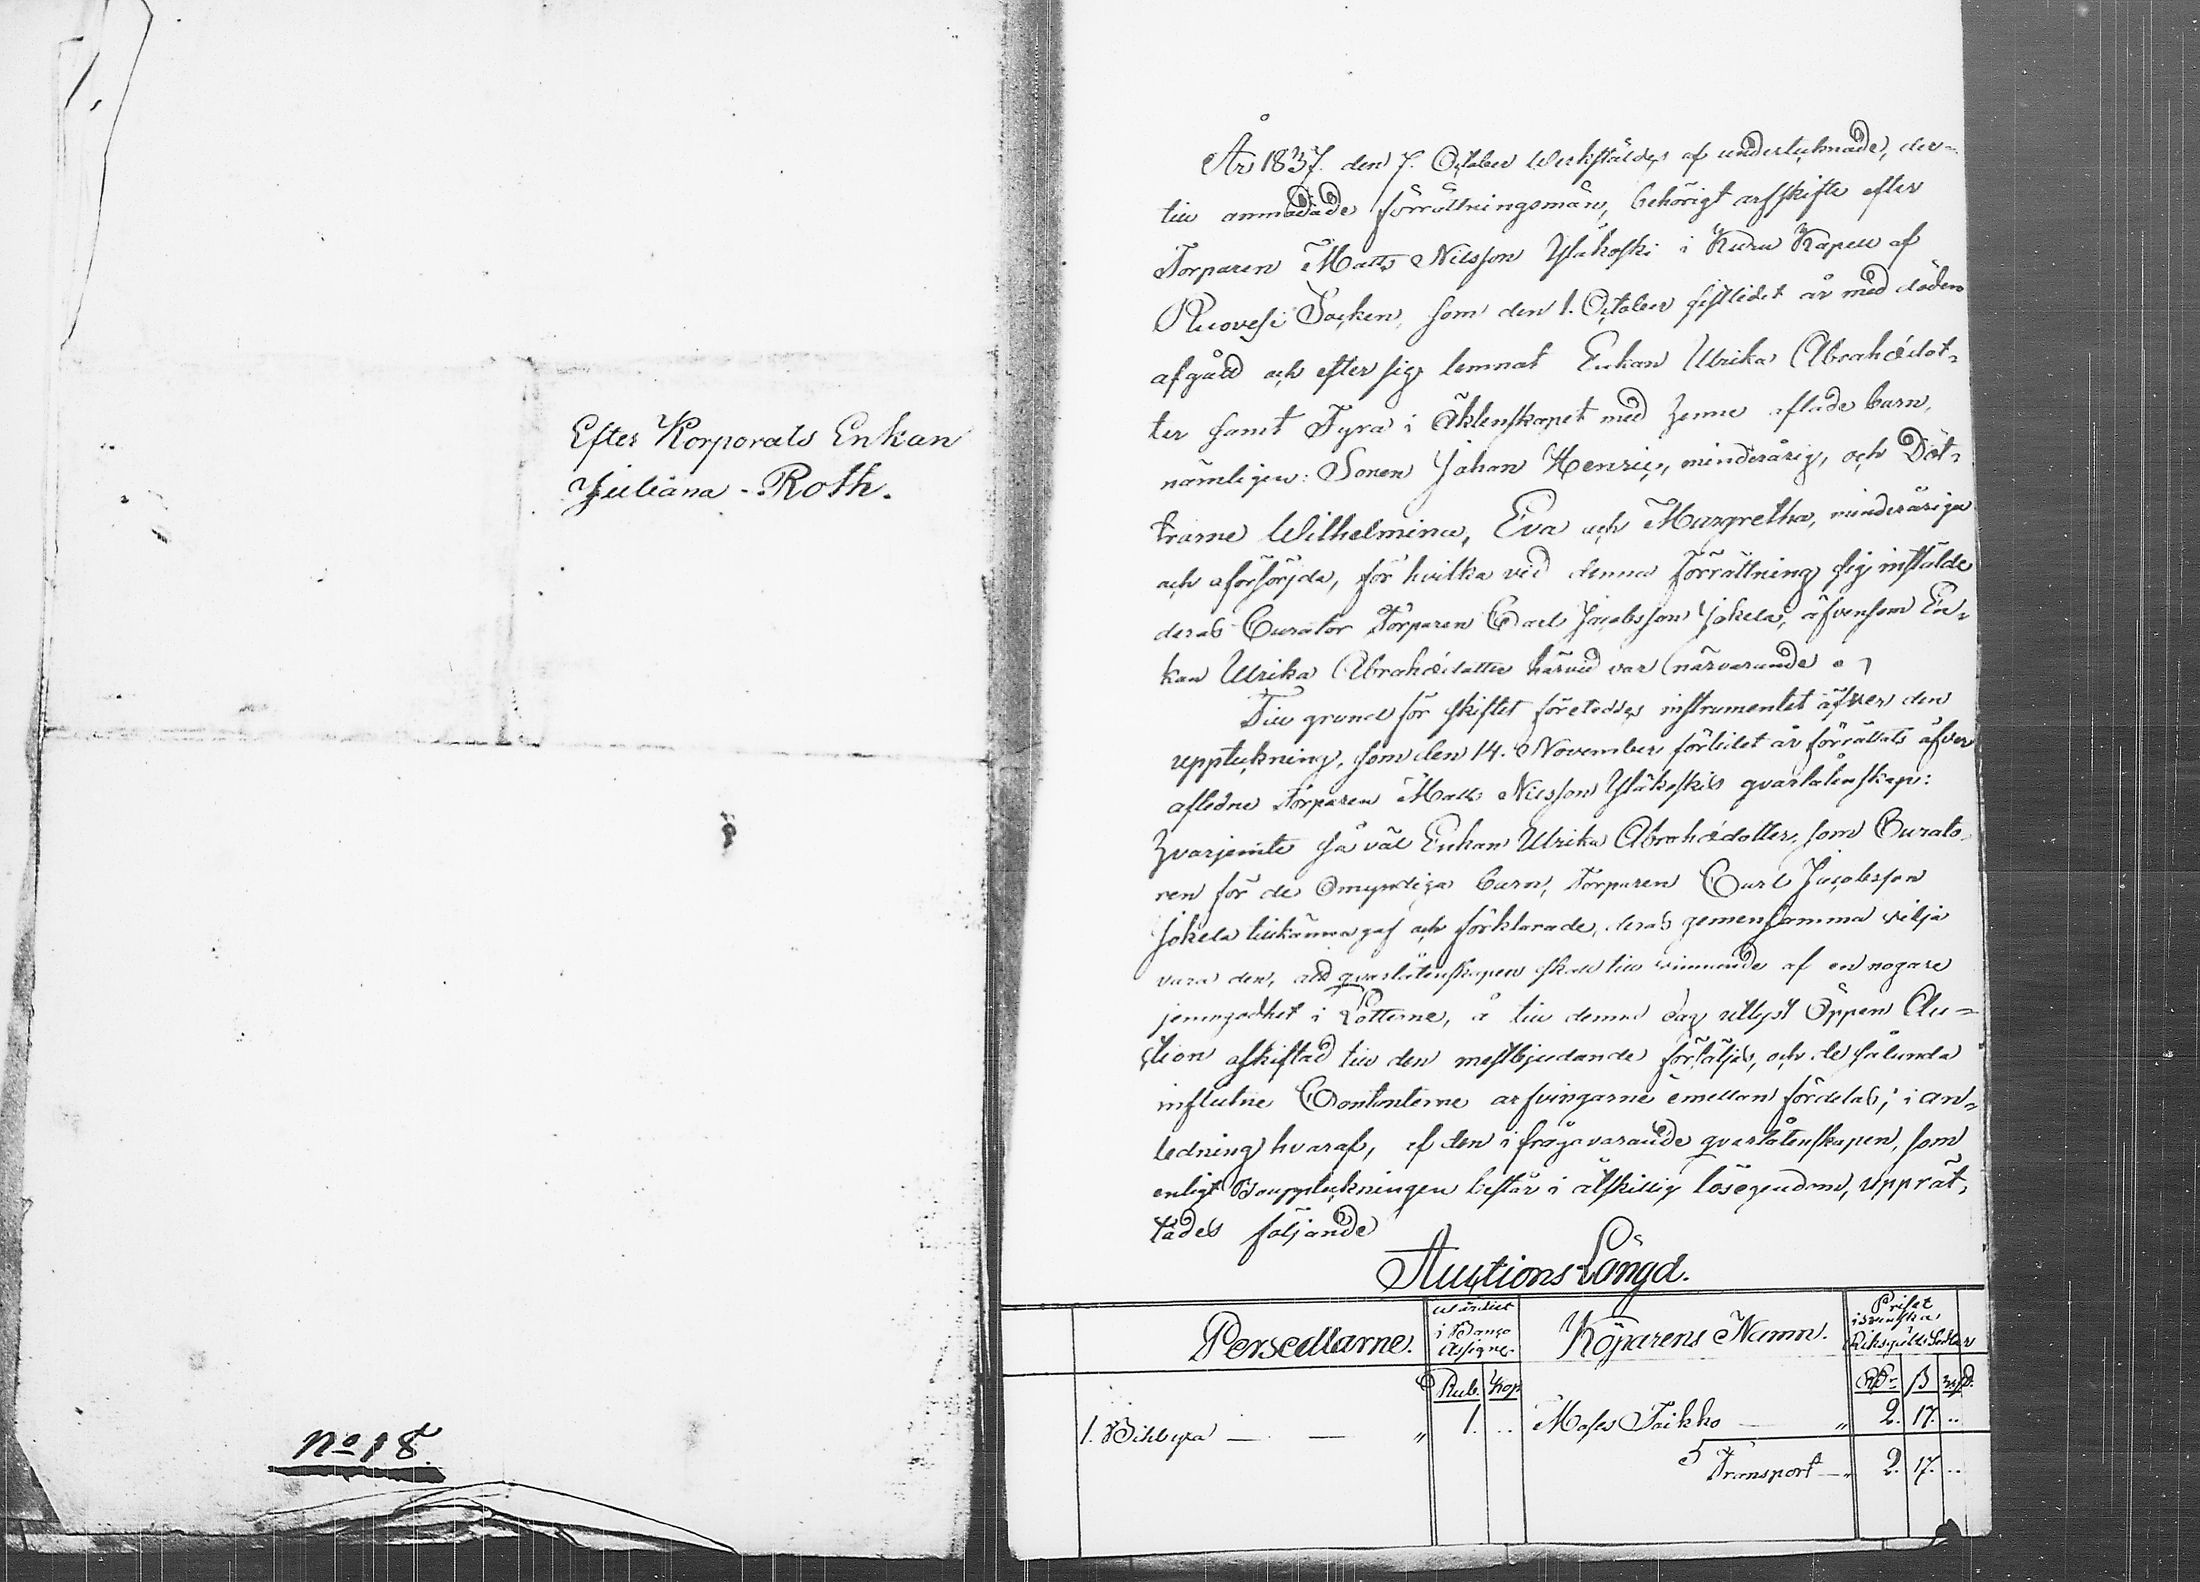 Efter Korporals Enkan
Juliana - Roth.
No 18.
År 1837. den 7. October Werkstäldes af undertecknade, der-
till anmodade förrättningsmän, behörigt arfskifte efter
Torparen Matts Nilsson Yläkoski i Kuru Kapell af
Ruovesi Socken, som den 1. October sistledit år med döden
afgådd och efter sig lemnat Enkan Ulrika Abrahamsdot-
ter samt Fyra i Äktenskapet med henne aflade barn,
nämligen: Sonen Johan Henric, minderårig, och Döt-
trarne Wilhelmina, Eva och Margretha, minderåriga
och oförsörjda, för hvilka vid denna Förrättning sig instälde
deras Curator Torparen Carl Jacobsson Jokela, äfvensom En-
kan Ulrika Abrahamsdotter härvid var närvarande.
Till grund för skiftet företeddes instrumentet öfver den
uppteckning, som den 14. November förledet år förrättats öfver
aflidne Torparen Matts Nilsson Yläkoskis qvarlåtenskap:
Hvarjemte så väl Enkan Ulrika Abrahamsdotter, som Curato-
ren för de Omyndiga barn, Torparen Carl Jacobsson
Jokela tillkänna gaf och förklarade, deras gemensamma vilja
vara den, att qvarlåtenskapen skall till vinnande af en nogare
jemngodhet i Lotterne, å till denna dag utlyst Öppen Au-
ction afskiftad till den mestbjudande försäljas, och de sålunda
influtne Contanterne arfvingarne emellan fördelas; i an-
ledning hvaraf, af den i fråga varande qvarlåtenskapen, som
enligt Bouppteckningen består i åtskillig lösegendom, upprät-
tades följande
Auctions Längd.
Persedlarne. Värdiet i Banco Assigner. Köparens Namn. Priset i svenska Riksgälds Sedlar
Rub. Kop Rdr ß rsp.
1. Bikbyxa — — " 1. .. Moses Taikko — " 2. 17. ..
Transport — 2. 17. ..